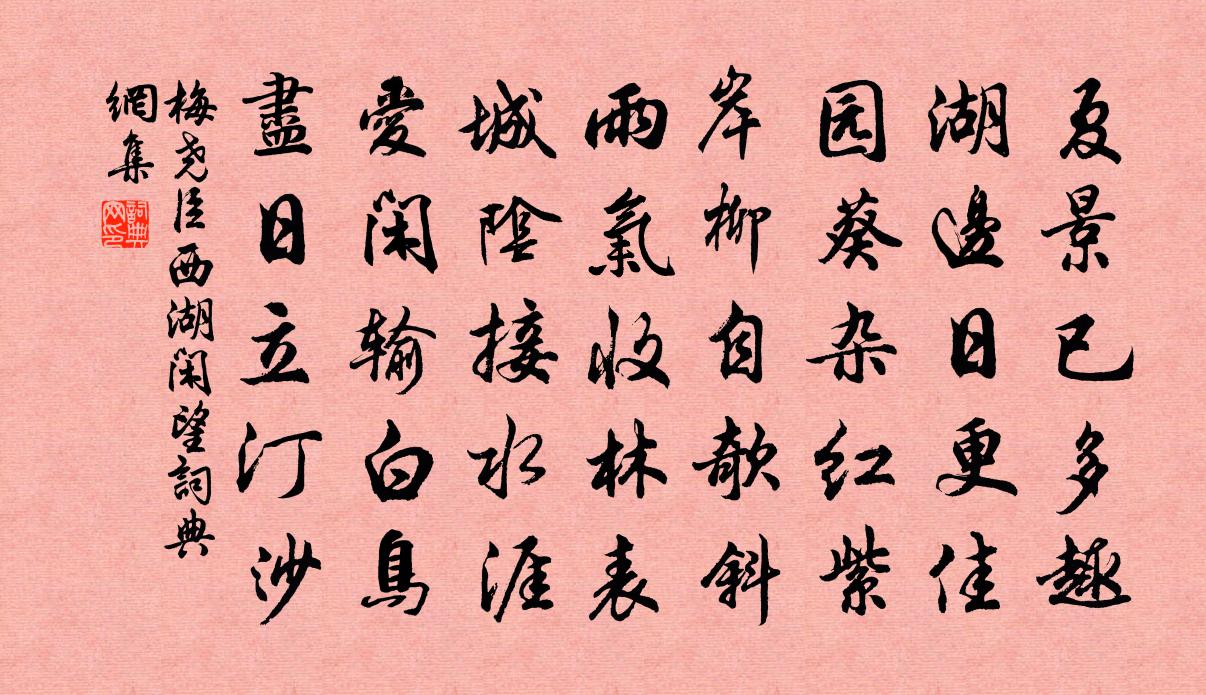 夏景已多趣
湖邊日更佳
园葵杂红紫
岸柳自欹斜
雨氣收林表
城陰接水涯
愛閑输白鳥
盡日立汀沙
梅尧臣西湖閑望詞典
網集
詞典網印